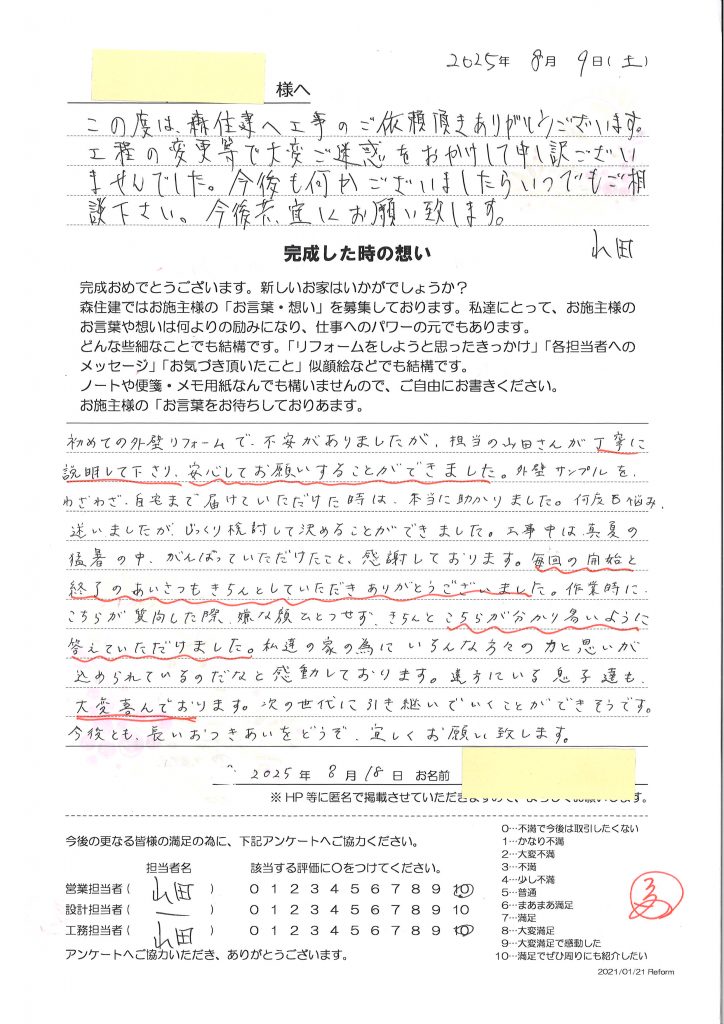 2025年 8月 9日(土)
様へ
この度は、森住建へ工事のご依頼頂きありがとうございます。
工程の変更等で大変ご迷惑をおかけして申し訳ござい
ませんでした。今後も何かございましたらいつでもご相
談下さい。今後共、宜しくお願い致します。
山田
完成した時の想い
完成おめでとうございます。新しいお家はいかがでしょうか?
森住建ではお施主様の「お言葉・想い」を募集しております。私達にとって、お施主様の
お言葉や想いは何よりの励みになり、仕事へのパワーの元でもあります。
どんな些細なことでも結構です。「リフォームをしようと思ったきっかけ」「各担当者への
メッセージ」「お気づき頂いたこと」似顔絵などでも結構です。
ノートや便箋・メモ用紙なんでも構いませんので、ご自由にお書きください。
お施主様の「お言葉をお待ちしておりあます。
初めての外壁リフォームで、不安がありましたが、担当の山田さんが丁寧に
説明して下さり、安心してお願いすることができました。外壁サンプルを、
わざわざ、自宅まで届けていただけた時は、本当に助かりました。何度も悩み、
迷いましたが、じっくり検討して決めることができました。工事中は、真夏の
猛暑の中、がんばっていただけたこと、感謝しております。毎回の開始と
終了のあいさつもきちんとしていただきありがとうございました。作業時に、
こちらが質問した際、嫌な顔ひとつせず、きちんとこちらが分かり易いように
答えていただけました。私達の家の為に いろんな方々の力と思いが
込められているのだなと感動しております。遠方にいる息子達も、
大変喜んでおります。次の世代に引き継いでいくことができそうです。
今後とも、長いおつきあいをどうぞ、宜しくお願い致します。
2025年 8月 18日 お名前
※HP等に匿名で掲載させていただきますので、よろしくお願いします。
今後の更なる皆様の満足の為に、下記アンケートへご協力ください。
担当者名 該当する評価に○をつけてください。
営業担当者( 山田 ) 0 1 2 3 4 5 6 7 8 9 10
設計担当者( ― ) 0 1 2 3 4 5 6 7 8 9 10
工務担当者( 山田 ) 0 1 2 3 4 5 6 7 8 9 10
アンケートへご協力いただき、ありがとうございます。
0…不満で今後は取引したくない
1…かなり不満
2…大変不満
3…不満
4…少し不満
5…普通
6…まあまあ満足
7…満足
8…大変満足
9…大変満足で感動した
10…満足でぜひ周りにも紹介したい
2021/01/21 Reform